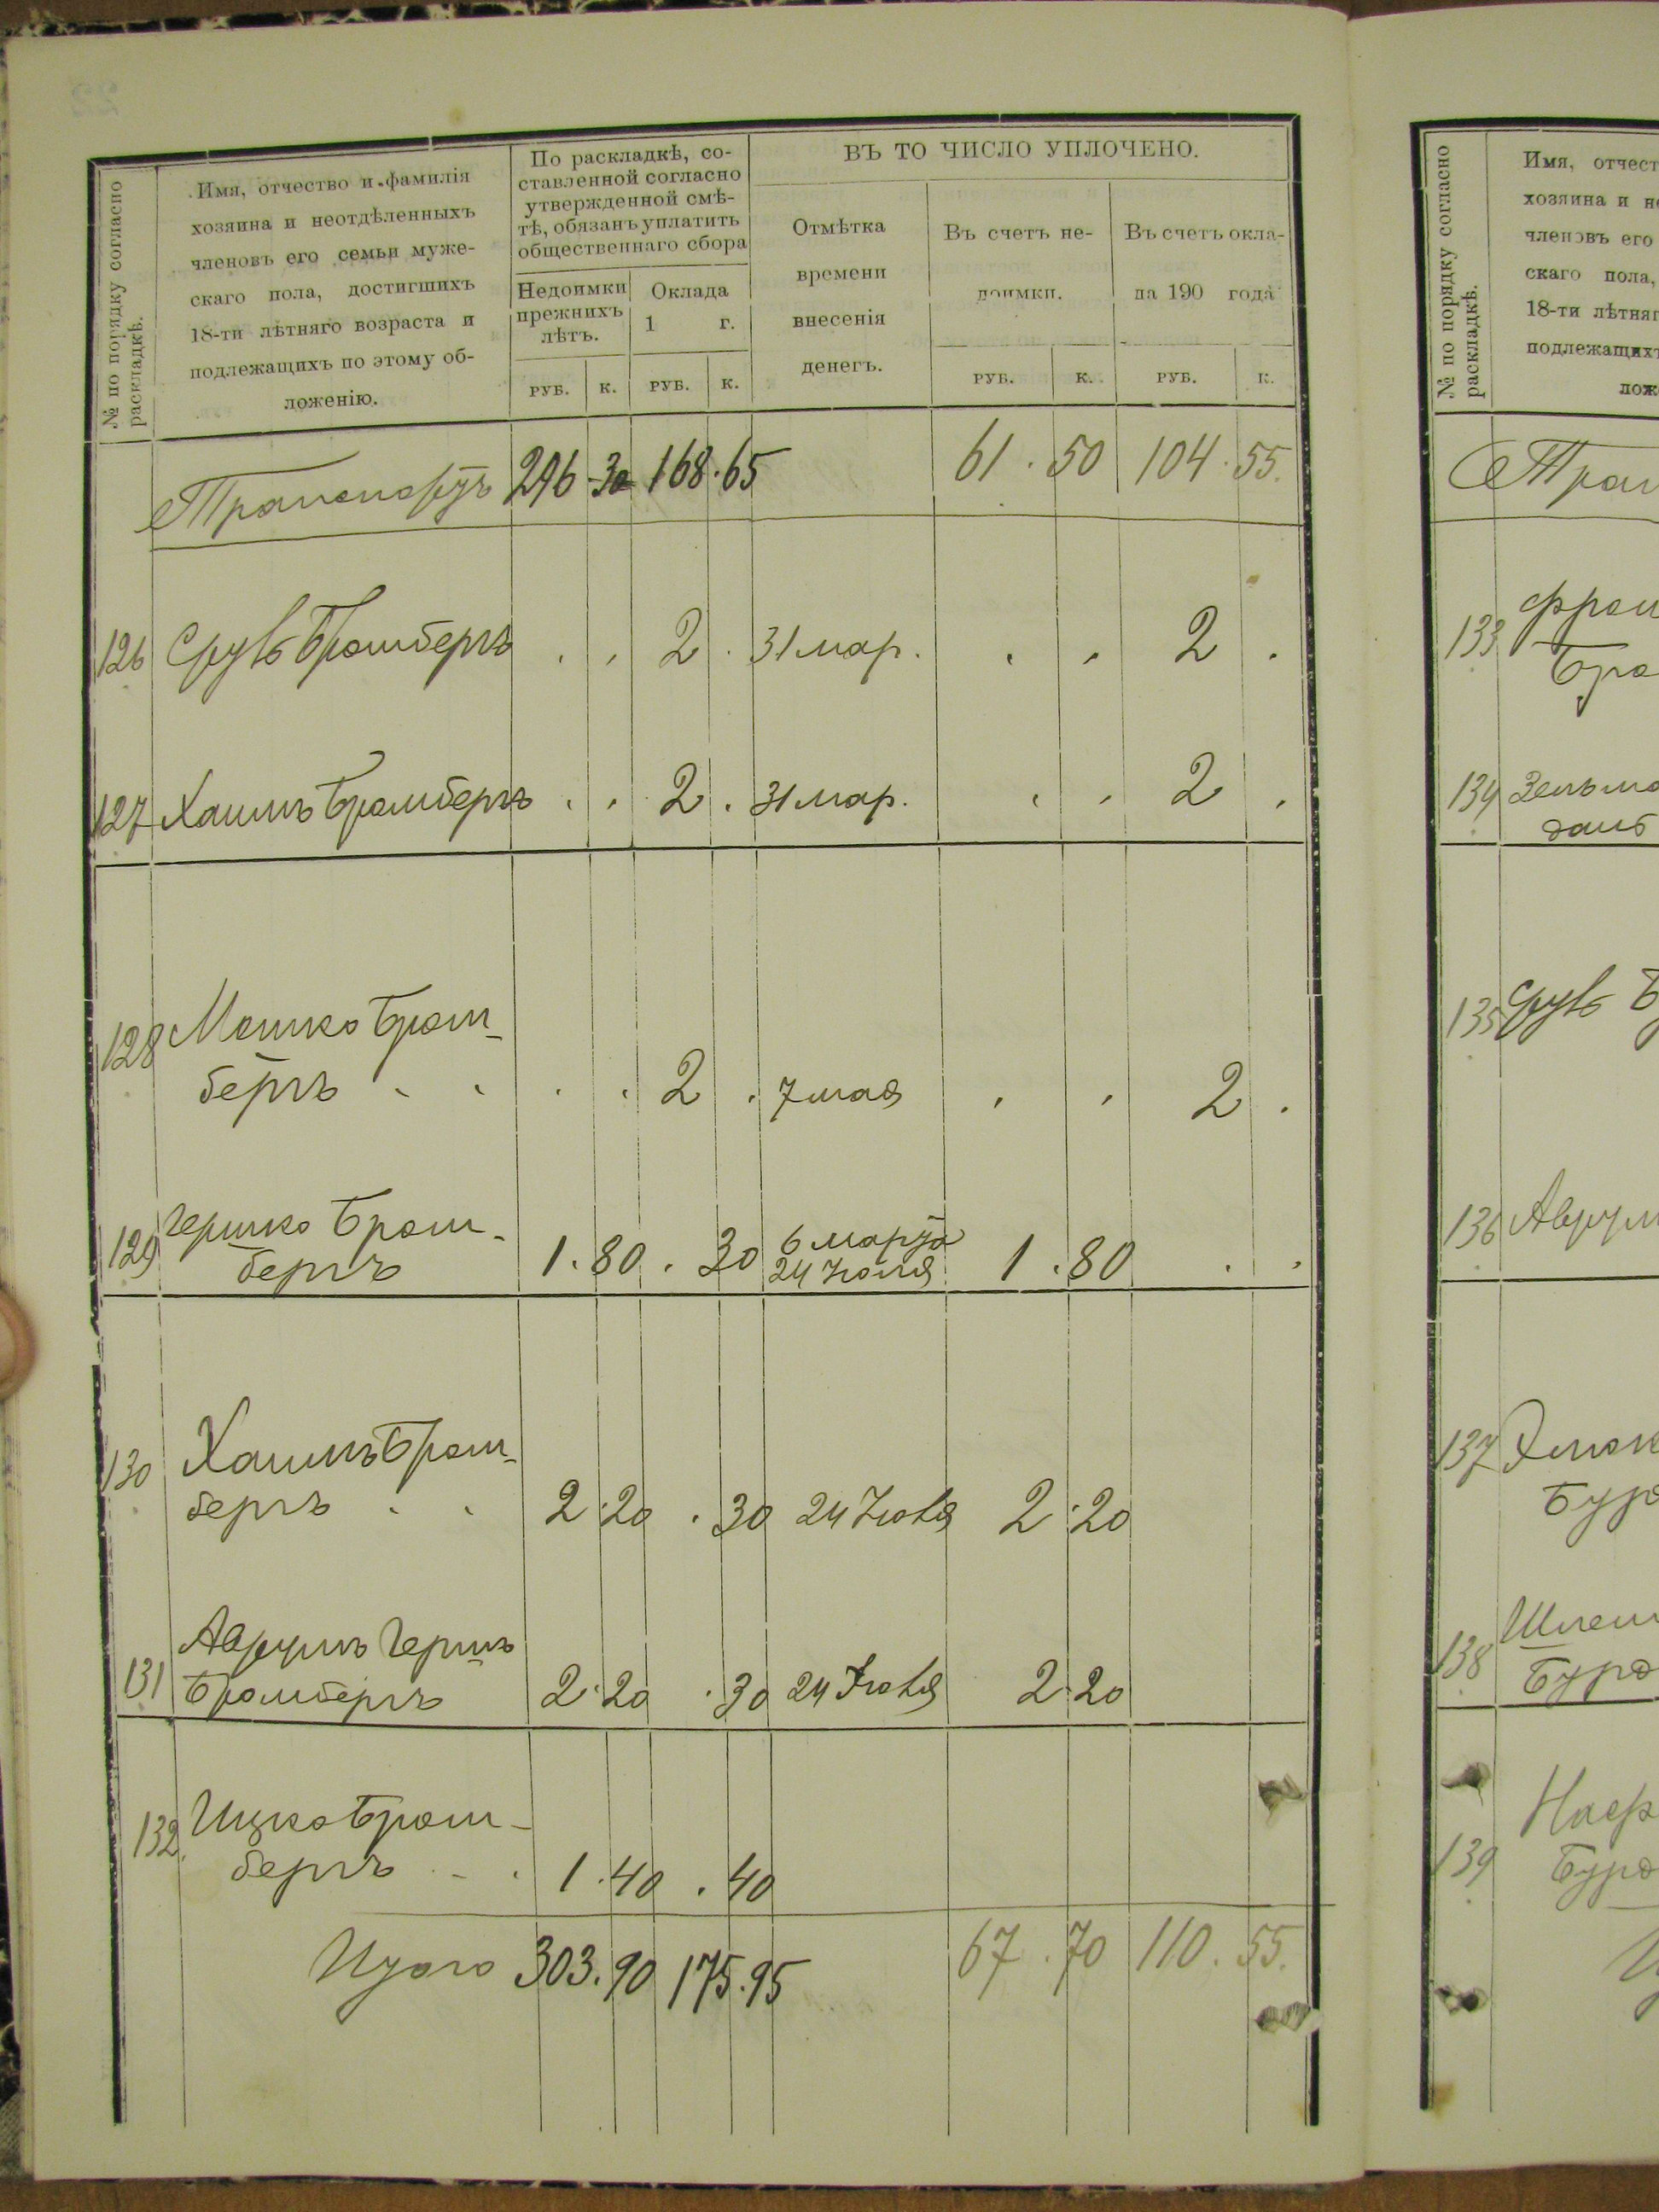 № по порядку согласно
раскладкѣ.
Имя, отчество и фамилія
хозяина и неотдѣленныхъ
членовъ его семьи муже-
скаго пола, достигшихъ
18-ти лѣтняго возраста и
подлежащихъ по этому об-
ложенію.
По раскладкѣ, со-
ставленной согласно
утвержденной смѣ-
тѣ, обязанъ уплатить
общественнаго сбора
Недоимки
прежнихъ
лѣтъ.
Оклада
1 г.
РУБ. К. РУБ. К.
ВЪ ТО ЧИСЛО УПЛОЧЕНО.
Отмѣтка
времени
внесенія
денегъ.
Въ счетъ не-
доимки.
РУБ. К.
Въ счетъ окла-
да 190 года
РУБ. К.
Транспортъ 296 . 30 168 . 65 61 . 50 104 . 55.
126 Срулъ Бромбергъ . . 2 . 31 мар. . . 2 .
127 Хаимъ Бромбергъ . . 2 . 31 мар. . . 2 .
128 Мошко Бром-
бергъ . . . . 2 . 7 мая . . 2 .
129 Гершко Бром-
бергъ 1 . 80 . 30 6 марта 1 . 80 . .
24 Июля
130 Хаимъ Бром-
бергъ . . 2 . 20 . 30 24 Июля 2 . 20
131 Аврумъ Гершъ
Бромбергъ 2 . 20 . 30 24 Июля 2 . 20
132. Ицко Бром-
бергъ - . 1 . 40 . 40
Итого 303 . 90 175 . 95 67 . 70 110 . 55.
№ по порядку согласно
раскладкѣ.
Имя, отчест
хозяина и н
членовъ его
скаго пола,
18-ти лѣтняг
подлежащихъ
лож
Тран
133 Фрои
Бро
134 Зельма
135 Срулъ Б
136 Аврум
137
Бур
138 Шлем
Бурд
139
Бурд